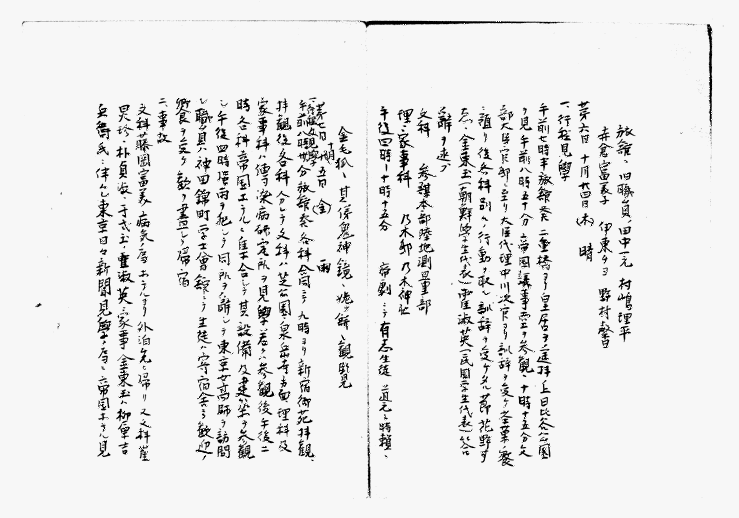 旅館ニ旧職員、田中一元 村嶋理平
赤倉富美子 伊東タヨ 野村
第六日 十月廿四日(木) 晴
一、行程見學
午前七時半旅館発 二重橋ヨリ皇居ヲ遥拝シ日比谷公園
ヲ見午前八時五十分 帝国議事堂ヲ参観、十時十五分文
部大臣官邸ニ至リ大臣代理中川次官ヨリ訓辞ヲ受ケ茶菓ノ饗
アリ後各科別ノ行動ヲ取ル 訓辞ヲ受ケタル節
金東玉(朝鮮學生代表)霍淑英(民国学生代表)答
辞ヲ述ブ
文科 参謀本部陸地測量部
理、家事科 乃木邸 乃木神社
午後四時ー十時十五分 帝劇ニテ有志生徒
金毛狐、其俤鬼神鏡、 観覧
第七日 十月廿五日(金) 雨
一、行程及見學
午前八時卅分旅館発各科合同ニテ九時ヨリ新宿御苑拝観、
拝観後各科ニ分レテ文科ハ芝公園、泉岳寺方面 理科及
家事科ハ傳染病研究所ヲ見學、若クハ参観後午後二
時各科帝国ホテルニ集合シテ其設備及建築ヲ参観
シ午後四時降雨ヲ犯シテ同所ヲ辞シテ東京女高師ヲ訪問
シ職員ハ神田錦町学士會館ニテ生徒ハ寄宿舎ニテ歓迎ノ
饗食ヲ受ケ歓ヲ盡シテ帰宿
二、事故
文科藤岡富美 病気ノ為ホテルヨリ外泊先ニ帰リ又文科崔
昊珍、朴貞淑、 霍淑英、家事 金東玉ハ柳
兵衛氏ニ伴ハレ東京日々新聞見學ノ為ニ帝国ホテル見